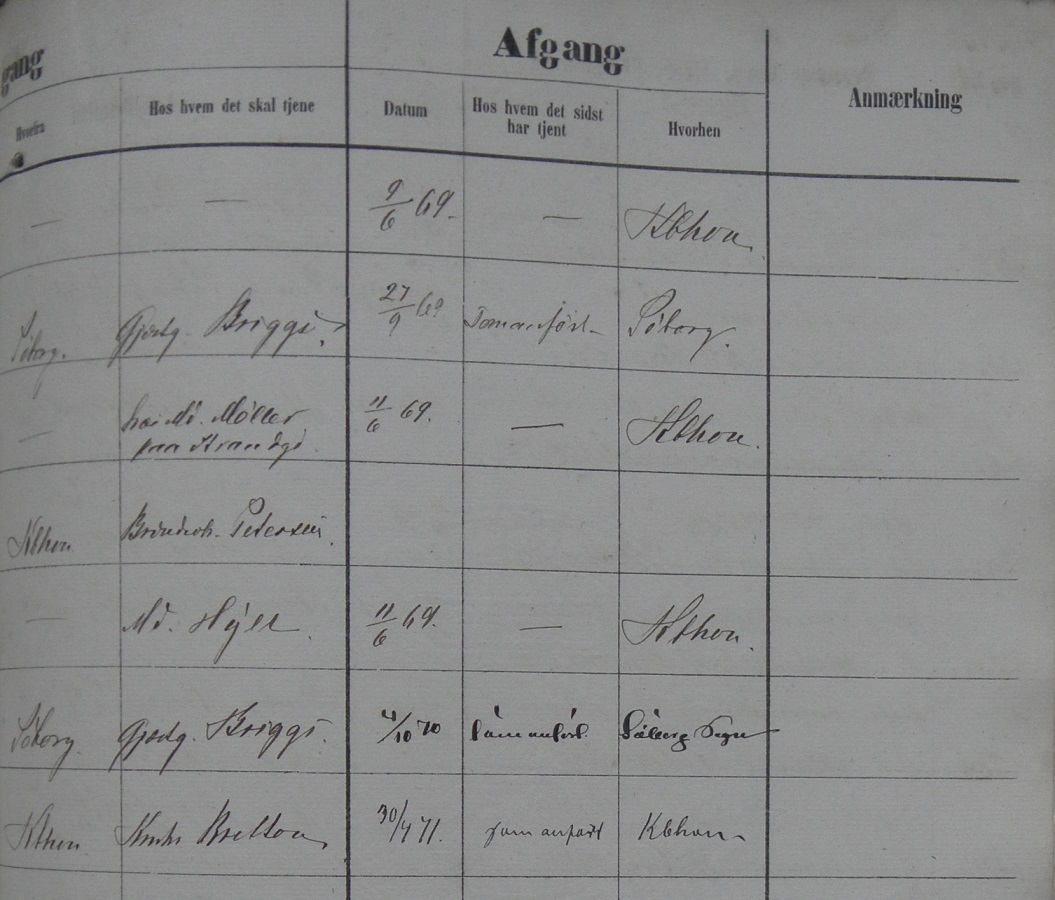 gang
Afgang
Hvorfra
Hos hvem det skal tjene
Datum
Hos hvem det sidst
har tjent
Hvorhen
Anmærkning
— — 9/6 69. — Kbhvn.
Söborg. Gjæstg. Briggs. 27/9 69 Somanført Söborg.
— hos Md. Møller
paa Strandgd. 11/6 69. — Kbhvn.
Kbhvn Petersen.
— Md. Höjer. 11/6 69. — Kbhvn.
Söborg. Gjæstg. Briggs. 4/10 70 Somanført. Söborg Sogn
Kbhvn 30/4 71. somanført Kbhvn